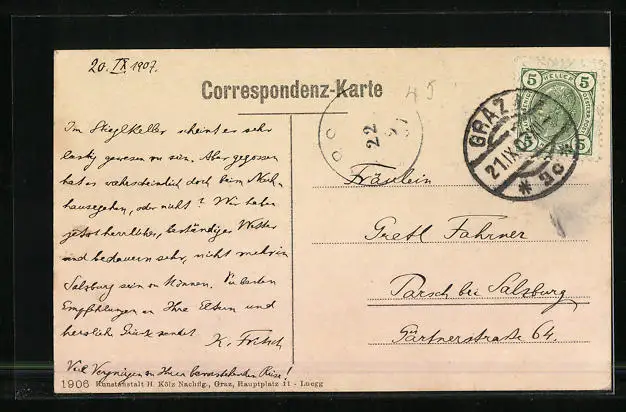 20. IX. 1907.
Correspondenz-Karte
Im Stieglkeller scheint es sehr
lustig gewesen zu sein. Aber gegossen
hat es wahrscheinlich doch beim Nach-
hausegehen, oder nicht? Wir haben
jetzt herrliches, beständiges Wetter
und bedauern sehr, nicht mehr in
Salzburg sein zu können. Die besten
Empfehlungen an Ihre Eltern und
herzliche Grüße sendet
K. Fritsch
Viel Vergnügen zu Ihrer bevorstehenden Reise!
1906 Kunstanstalt H. Kölz Nachflg., Graz, Hauptplatz 11 - Luegg
45
22
5 HELLER 5
5 5
GRAZ
21.IX
* 2c *
Fräulein
Gretl Fahrner
Parsch bei Salzburg
Gärtnerstraße 64.